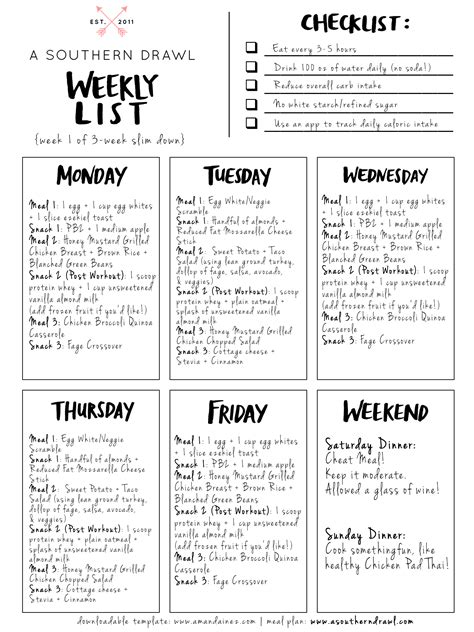 EST. 2011
A SOUTHERN DRAWL
WEEKLY
LIST
{week 1 of 3-week slim down}
CHECKLIST:
Eat every 3-5 hours
Drink 100 oz of water daily (no soda!)
Reduce overall carb intake
No white starch/refined sugar
Use an app to track daily caloric intake
MONDAY
Meal 1: 1 egg + 1 cup egg whites
+ 1 slice ezekiel toast
Snack 1: PB2 + 1 medium apple
Meal 2: Honey Mustard Grilled
Chicken Breast + Brown Rice +
Blanched Green Beans
Snack 2 (Post Workout): 1 scoop
protein whey + 1 cup unsweetened
vanilla almond milk
(add frozen fruit if you'd like!)
Meal 3: Chicken Broccoli Quinoa
Casserole
Snack 3: Fage Crossover
TUESDAY
Meal 1: Egg White/Veggie
Scramble
Snack 1: Handful of almonds +
Reduced Fat Mozzarella Cheese
Stick
Meal 2: Sweet Potato + Taco
Salad (using lean ground turkey,
dollop of fage, salsa, avocado,
& veggies)
Snack 2 (Post Workout): 1 scoop
protein whey + plain oatmeal +
splash of unsweetened vanilla
almond milk
Meal 3: Honey Mustard Grilled
Chicken Chopped Salad
Snack 3: Cottage cheese +
Stevia + Cinnamon
WEDNESDAY
Meal 1: 1 egg + 1 cup egg whites
+ 1 slice ezekiel toast
Snack 1: PB2 + 1 medium apple
Meal 2: Honey Mustard Grilled
Chicken Breast + Brown Rice +
Blanched Green Beans
Snack 2 (Post Workout): 1 scoop
protein whey + 1 cup unsweetened
vanilla almond milk
(add frozen fruit if you'd like!)
Meal 3: Chicken Broccoli Quinoa
Casserole
Snack 3: Fage Crossover
THURSDAY
Meal 1: Egg White/Veggie
Scramble
Snack 1: Handful of almonds +
Reduced Fat Mozzarella Cheese
Stick
Meal 2: Sweet Potato + Taco
Salad (using lean ground turkey,
dollop of fage, salsa, avocado,
& veggies)
Snack 2 (Post Workout): 1 scoop
protein whey + plain oatmeal +
splash of unsweetened vanilla
almond milk
Meal 3: Honey Mustard Grilled
Chicken Chopped Salad
Snack 3: Cottage cheese +
Stevia + Cinnamon
FRIDAY
Meal 1: 1 egg + 1 cup egg whites
+ 1 slice ezekiel toast
Snack 1: PB2 + 1 medium apple
Meal 2: Honey Mustard Grilled
Chicken Breast + Brown Rice +
Blanched Green Beans
Snack 2 (Post Workout): 1 scoop
protein whey + 1 cup unsweetened
vanilla almond milk
(add frozen fruit if you'd like!)
Meal 3: Chicken Broccoli Quinoa
Casserole
Snack 3: Fage Crossover
WEEKEND
Saturday Dinner:
Cheat Meal!
Keep it moderate.
Allowed a glass of wine!
Sunday Dinner:
Cook somethingfun, like
healthy Chicken Pad Thai!
downloadable template: www.amandainez.com | meal plan: www.asoutherndrawl.com